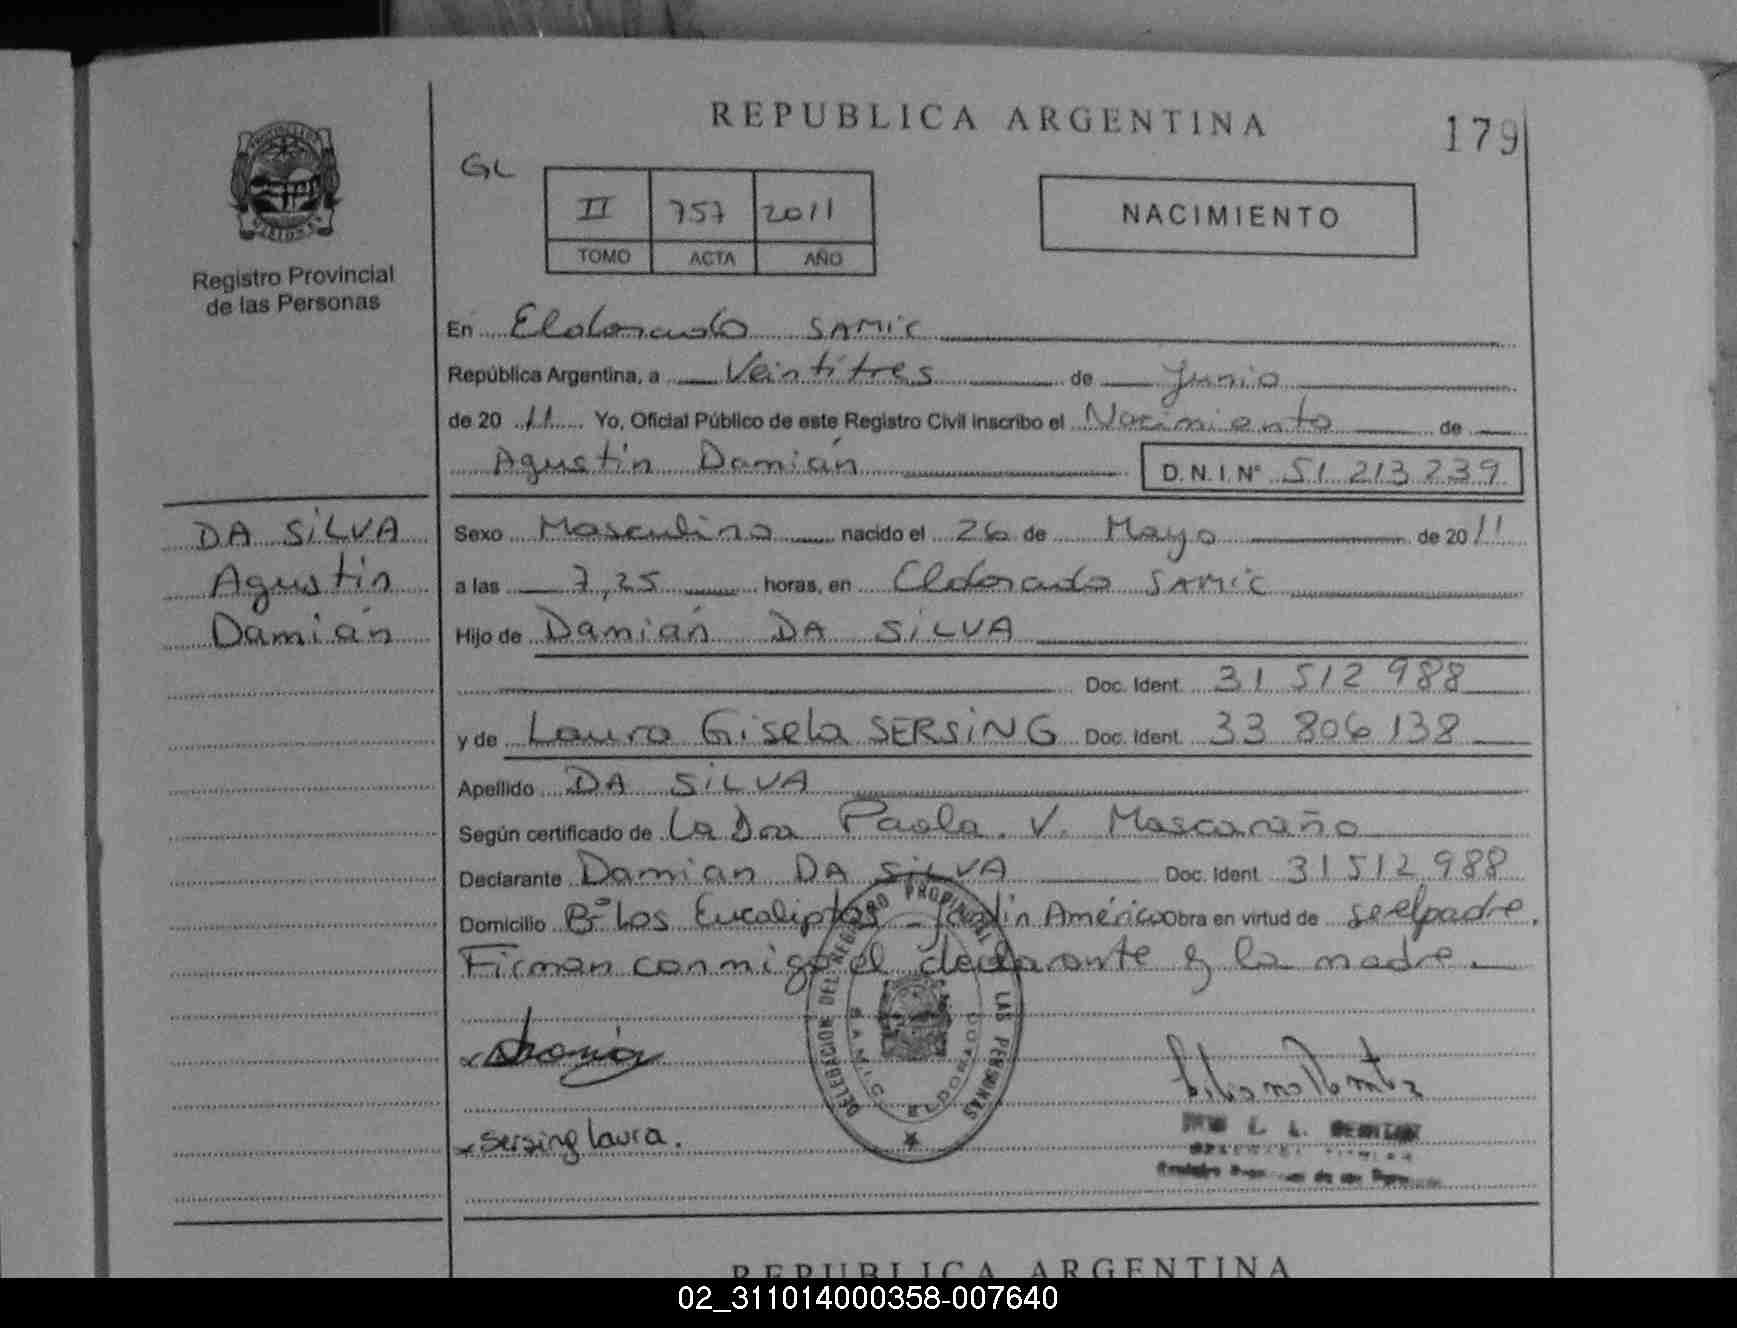 REPUBLICA ARGENTINA
179
GL
II 757 2011
TOMO ACTA AÑO
NACIMIENTO
Registro Provincial
de las Personas
En Eldorado SAMIC
República Argentina, a Veintitres de Junio
de 2011 Yo, Oficial Público de este Registro Civil inscribo el Nacimiento de
Agustín Damián D.N.I. N° 51 213 239
DA SILVA
Agustín
Damián
Sexo Masculino nacido el 26 de Mayo de 2011
a las 7,25 horas, en Eldorado SAMIC
Hijo de Damián DA SILVA
Doc. Ident. 31 512 988
y de Laura Gisela SERSING Doc. Ident. 33 806 138
Apellido DA SILVA
Según certificado de La Dra Paola. V. Mascaraño
Declarante Damian DA SILVA Doc. Ident. 31 512 988
Domicilio B° Los Eucaliptos - Jardín América obra en virtud de ser el padre.
Firman conmigo el declarante y la madre.
DELEGACION DEL REGISTRO PROVINCIAL LAS PERSONAS
SAMIC ELDORADO
Sersing laura.
REPUBLICA ARGENTINA
02_311014000358-007640